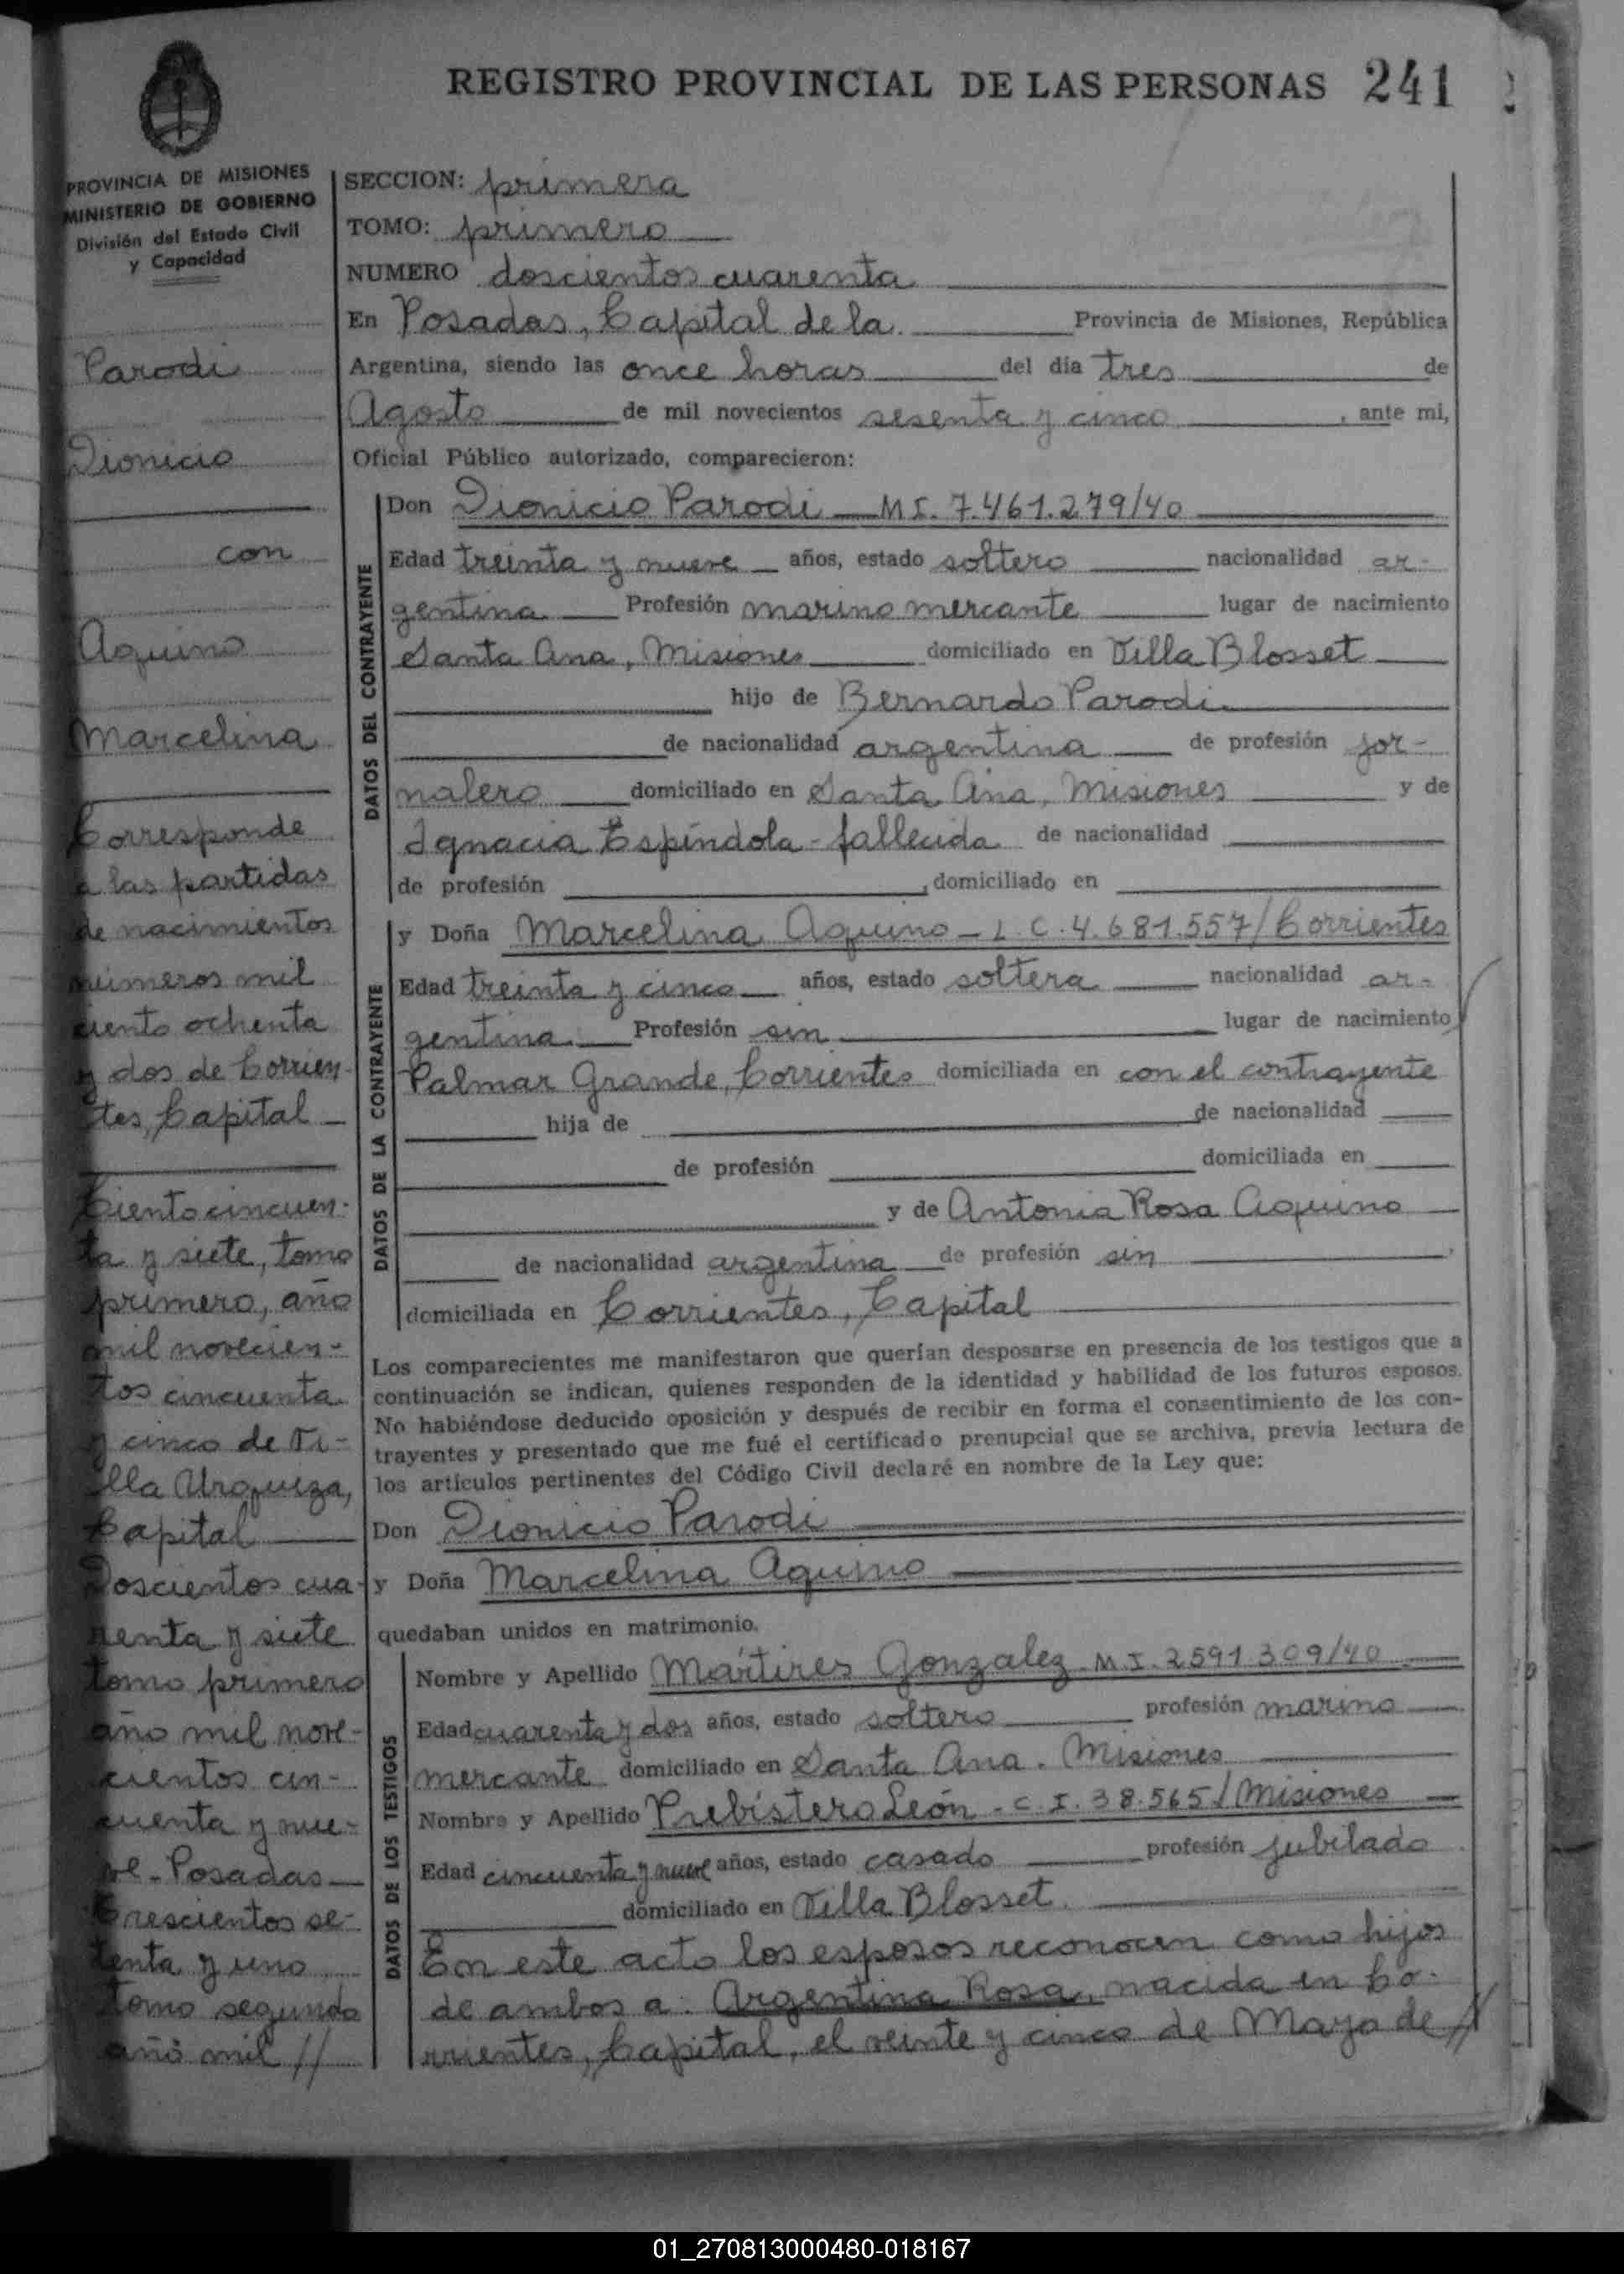 REGISTRO PROVINCIAL DE LAS PERSONAS 241
PROVINCIA DE MISIONES
MINISTERIO DE GOBIERNO
División del Estado Civil
y Capacidad
Parodi
Dionicio
con
Aquino
Marcelina
Corresponde
a las partidas
de nacimientos
números mil
ciento ochenta
y dos de Corrien-
tes, Capital
Ciento cincuen-
ta y siete, tomo
primero, año
mil novecien-
tos cincuenta
y cinco de Vi-
lla Urquiza,
Capital
Doscientos cua-
renta y siete
tomo primero
año mil nove-
cientos cin-
cuenta y nue-
ve - Posadas
Trescientos se-
tenta y uno
tomo segundo
año mil //
SECCION: primera
TOMO: primero
NUMERO doscientos cuarenta
En Posadas, Capital de la Provincia de Misiones, República
Argentina, siendo las once horas del día tres de
Agosto de mil novecientos sesenta y cinco, ante mi,
Oficial Público autorizado, comparecieron:
DATOS DEL CONTRAYENTE
Don Dionicio Parodi — M I. 7.461.279/40
Edad treinta y nueve años, estado soltero nacionalidad ar-
gentina Profesión marino mercante lugar de nacimiento
Santa Ana, Misiones domiciliado en Villa Blosset
hijo de Bernardo Parodi
de nacionalidad argentina de profesión jor-
nalero domiciliado en Santa Ana, Misiones y de
Ignacia Espíndola - fallecida de nacionalidad
de profesión , domiciliado en
DATOS DE LA CONTRAYENTE
y Doña Marcelina Aquino — L. C. 4.681.557/Corrientes
Edad treinta y cinco años, estado soltera nacionalidad ar-
gentina Profesión sin lugar de nacimiento
Palmar Grande, Corrientes domiciliada en con el contrayente
hija de de nacionalidad
de profesión domiciliada en
y de Antonia Rosa Aquino
de nacionalidad argentina de profesión sin ,
domiciliada en Corrientes, Capital
Los comparecientes me manifestaron que querían desposarse en presencia de los testigos que a
continuación se indican, quienes responden de la identidad y habilidad de los futuros esposos.
No habiéndose deducido oposición y después de recibir en forma el consentimiento de los con-
trayentes y presentado que me fué el certificado prenupcial que se archiva, previa lectura de
los artículos pertinentes del Código Civil declaré en nombre de la Ley que:
Don Dionicio Parodi
y Doña Marcelina Aquino
quedaban unidos en matrimonio.
DATOS DE LOS TESTIGOS
Nombre y Apellido Mártires Gonzalez M I. 2591.309/40
Edad cuarenta y dos años, estado soltero profesión marino
mercante domiciliado en Santa Ana. Misiones
Nombre y Apellido Prebístero León - C. I. 38.565/Misiones
Edad cincuenta y nueve años, estado casado profesión jubilado
domiciliado en Villa Blosset
En este acto los esposos reconocen como hijos
de ambos a: Argentina Rosa, nacida en Co-
rrientes, Capital, el veinte y cinco de Mayo de //
01_270813000480-018167